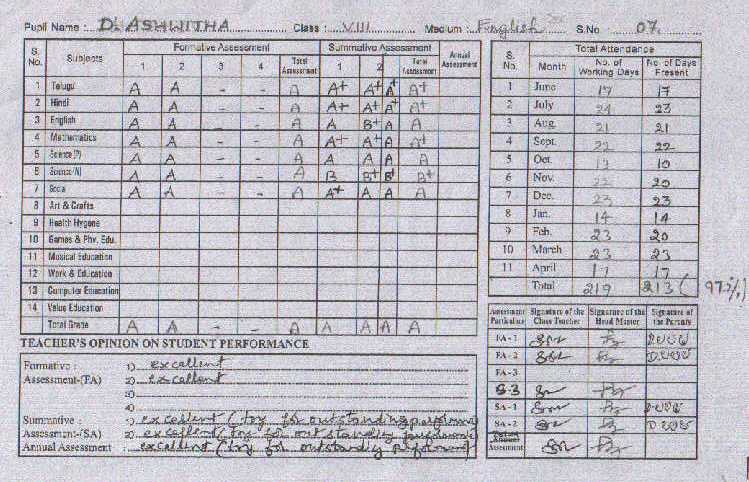 Pupil Name : D. ASHWITHA Class : VIII Medium : English S.No. 07.
S. No. Subjects Formative Assessment Summative Assessment Annual Assessment
1 2 3 4 Total Assessment 1 2 Total Assessment
1 Telugu A A - - A A+ A+ A+ A+
2 Hindi A A - - A A+ A+ A+ A+
3 English A A - - A A B+ A A
4 Mathematics A A - - A A+ A+ A A+
5 Science(P) A A - - A A A A A
6 Science(N) A A - - A B B+ B+ B+
7 Social A A - - A A+ A A A
8 Art & Crafts
9 Health Hygene
10 Games & Phy. Edu.
11 Musical Education
12 Work & Education
13 Computer Education
14 Value Education
Total Grade A A - - A A A A A
TEACHER'S OPINION ON STUDENT PERFORMANCE
Formative : 1) excellent
Assessment-(FA) 2) excellent
3)
4)
Summative : 1) excellent (try for outstanding performing
Assessment-(SA) 2) excellent (try for outstanding
Annual Assessment : excellent (try for outstanding
S. No. Month Total Attendance
No. of Working Days No. of Days Present
1 June 17 17
2 July 24 23
3 Aug. 21 21
4 Sept. 22 22
5 Oct. 10
6 Nov. 22 20
7 Dec. 23 23
8 Jan. 14 14
9 Feb. 23 20
10 March 23 23
11 April 17 17
Total 219 213 (97%)
Assessment Particulars Signature of the Class Teacher Signature of the Head Master Signature of the Parents
FA - 1
FA - 2
FA - 3
S-3
SA - 1
SA - 2
Annual Assessment